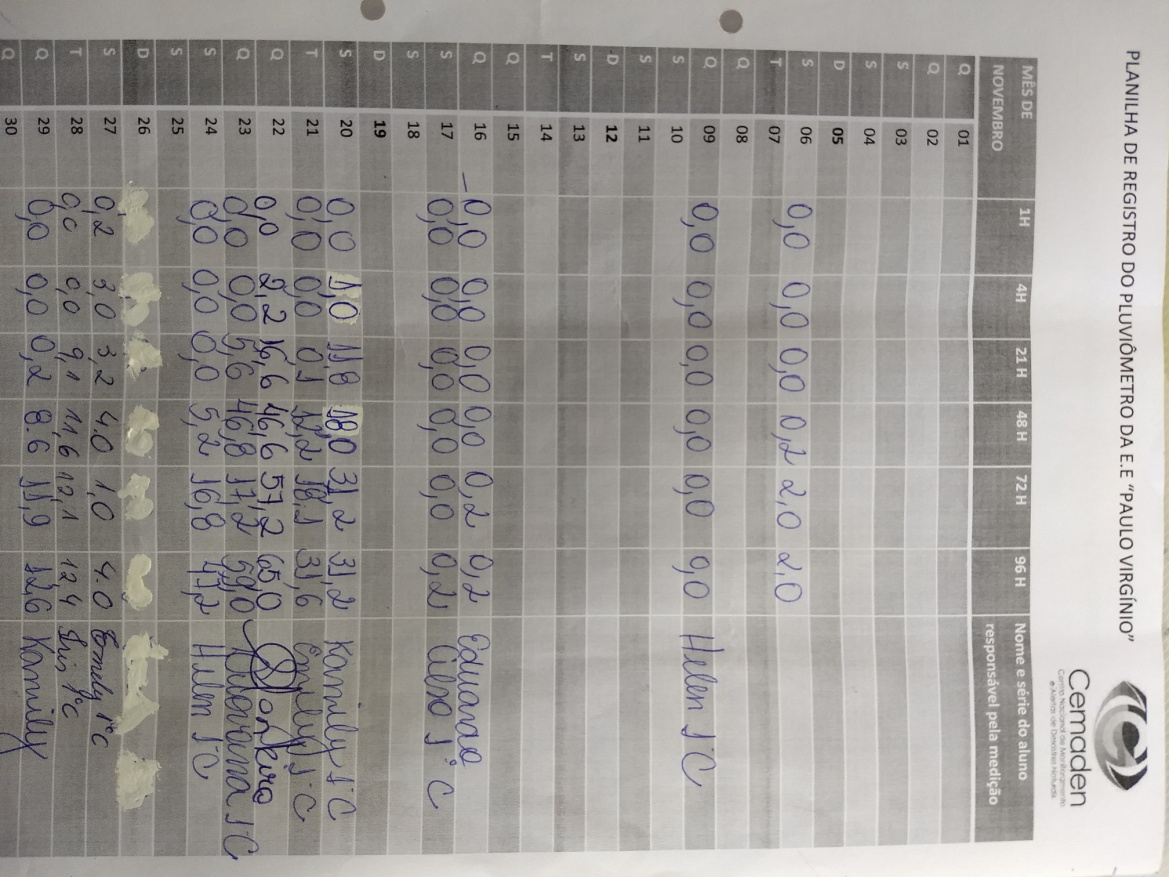 PLANILHA DE REGISTRO DO PLUVIÔMETRO DA E.E "PAULO VIRGÍNIO"
Cemaden
Centro Nacional de Monitoramento
e Alertas de Desastres Naturais
MÊS DE NOVEMBRO 1H 4H 21 H 48 H 72 H 96 H Nome e série do aluno responsável pela medição
Q 01
Q 02
S 03
S 04
D 05
S 06 0,0 0,0 0,0 0,2 2,0 2,0
T 07
Q 08
Q 09 0,0 0,0 0,0 0,0 0,0 0,0 Helen 1°C
S 10
S 11
D 12
S 13
T 14
Q 15
Q 16 - 0,0 0,0 0,0 0,0 0,2 0,2 Eduardo
S 17 0,0 0,0 0,0 0,0 0,0 0,2 1°C
S 18
D 19
S 20 0,0 1,0 11,8 18,0 31,2 31,2 Kamilly 1°C
T 21 0,0 0,0 0,1 12,2 18,1 31,6 Emilly 1°C
Q 22 0,0 2,2 16,6 46,6 57,2 65,0
Q 23 0,0 0,0 5,6 46,8 17,2 59,0 1°C
S 24 0,0 0,0 0,0 5,2 16,8 47,2 Helen 1°C
S 25
D 26
S 27 0,2 3,0 3,2 4.0 1,0 4.0 Emely 1°C
T 28 0,0 0,0 9,1 11,6 12,1 12,4 1°C
Q 29 0,0 0,0 0,2 8,6 11,9 12,6 Kamilly
Q 30